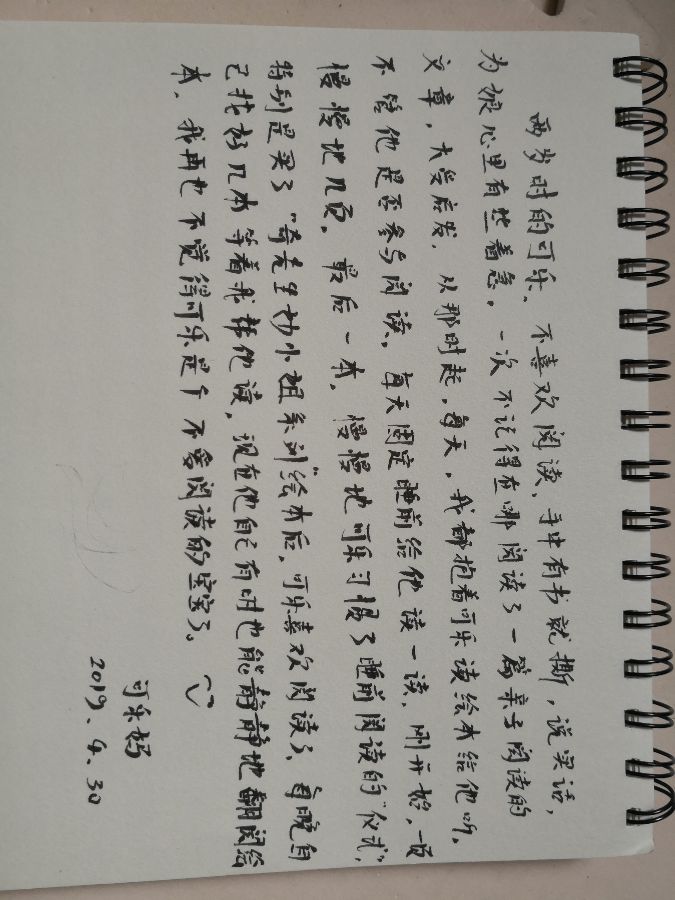 两岁时的可乐，不喜欢阅读，手中有书就撕，说实话，
为娘心里有些着急。一次不记得在哪阅读了一篇亲子阅读的
文章，大受启发，从那时起，每天，我都抱着可乐读绘本给他听。
不管他是否参与阅读，每天固定睡前给他读一读，刚开始，一页
慢慢地几页，最后一本，慢慢地可乐习惯了睡前阅读的“仪式”，
特别是买了“奇先生妙小姐系列”绘本后，可乐喜欢阅读了，每晚自
己找好几本等着我帮他读，现在他自己有时也能静静地翻阅绘
本，我再也不觉得可乐是个不爱阅读的宝宝了。
可乐妈
2019.4.30